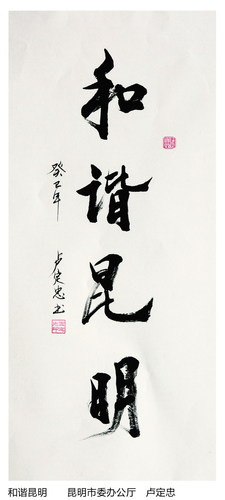 和谐昆明
癸巳年
卢定忠书
和谐昆明 昆明市委办公厅 卢定忠